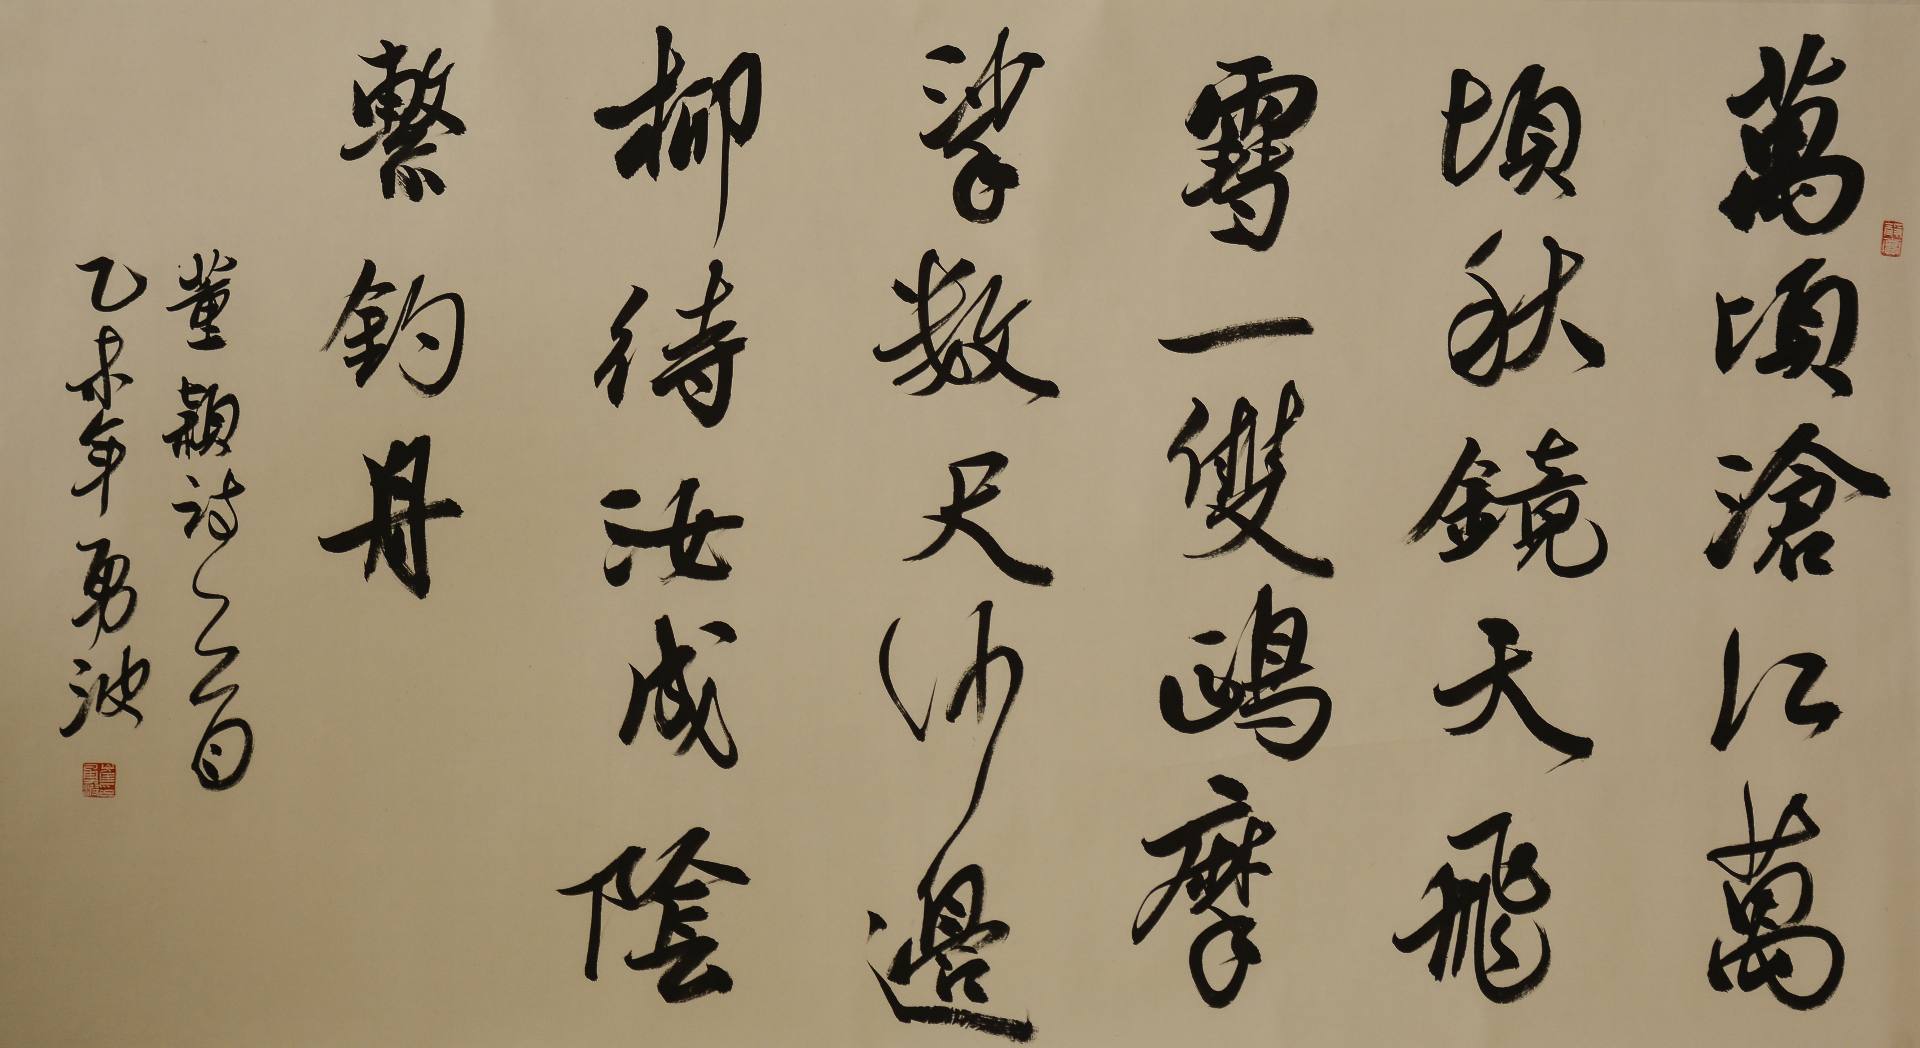 萬頃滄江萬
頃秋鏡天飛
雪一雙鷗摩
挲数尺沙邊
柳待汝成陰
繫釣舟
董穎詩一首
乙未年勇波